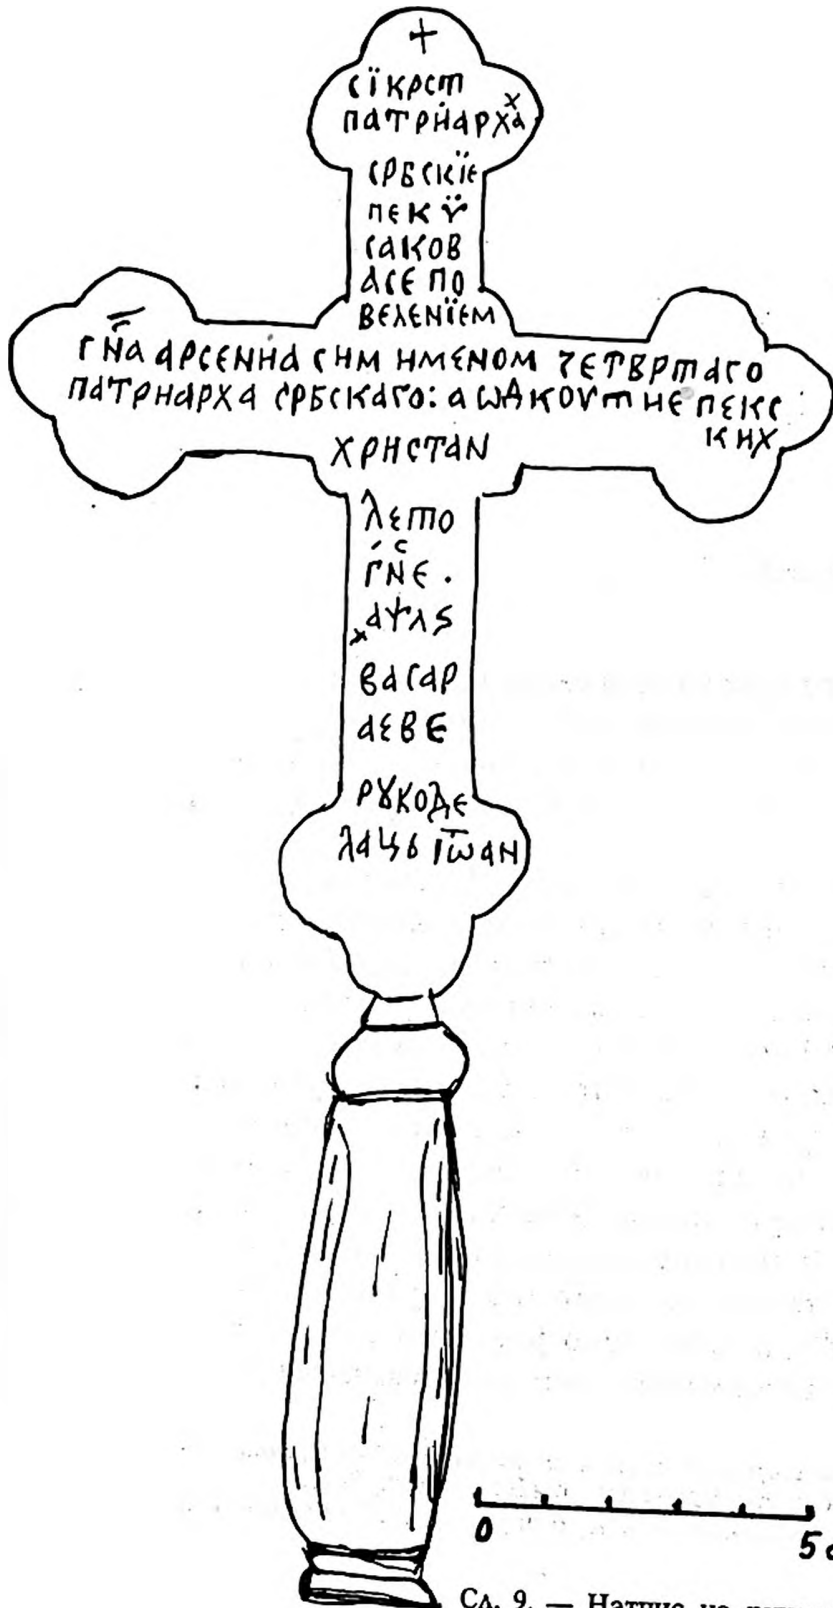 +
сї крст
патрїархⷯа
србскїе
пекѵ̈
саков
асе по
веленїем
гн҃ⷭа арсениа сим именом четвртаго
патриарха србскаго: а ѡд коѵт не пекс
ких
христан
лето
гнⷭе.
҂аѱлѕ
васар
аеве
рꙋкоде
лацъ іѡ҃ан
0 5
Сл. 9. — Натпис на